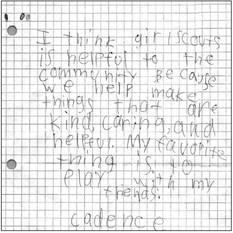 I think girlscouts
is helpful to the
community Because
we help make
things that are
kind, caring, and
helpful. My favorite
thing is to
play with my
friends.
cadence